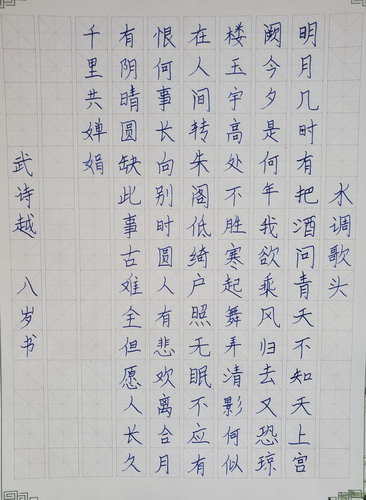 水调歌头
明月几时有把酒问青天不知天上宫
阙今夕是何年我欲乘风归去又恐琼
楼玉宇高处不胜寒起舞弄清影何似
在人间转朱阁低绮户照无眠不应有
恨何事长向别时圆人有悲欢离合月
有阴晴圆缺此事古难全但愿人长久
千里共婵娟
武诗越 八岁书